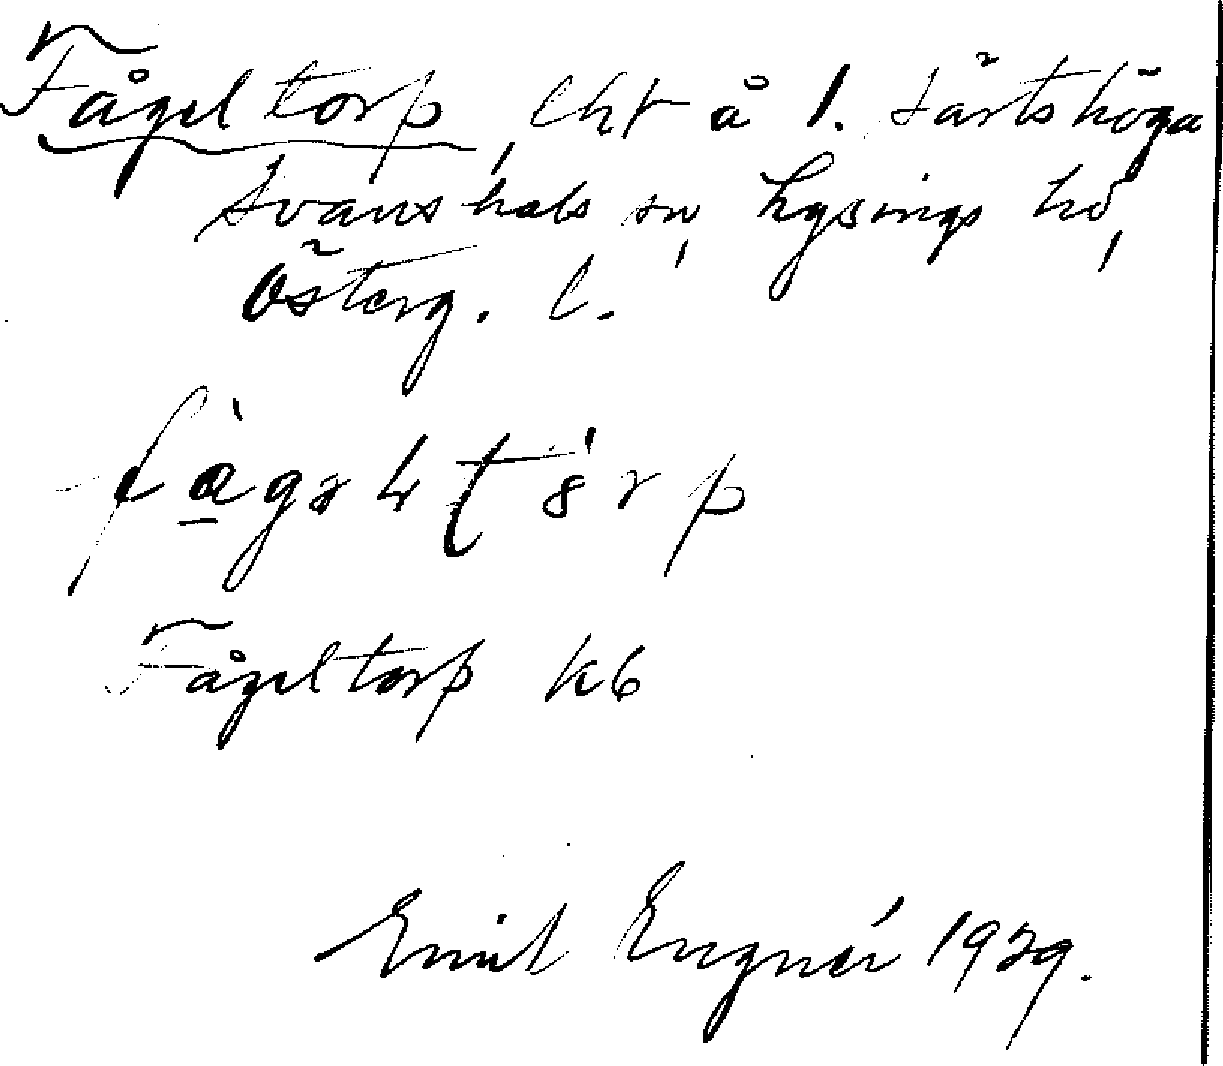 Fågeltorp, lht å 1. Särtshöga
Svanshals sn, Lysings hd,
Österg. l.
Fågeltorp k6
Emil Engnér 1929.